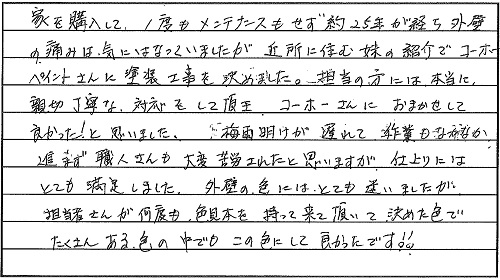 家を購入して、1度もメンテナンスもせず約25年が経ち外壁
の痛みは気にはなっていましたが近所に住む妹の紹介でコーホー
ペイントさんに塗装工事を決めました。担当の方には本当に
親切丁寧な対応をして頂き コーホーさんにおまかせして
良かった!と思いました。梅雨明けが遅れて作業もなかなか
進まず職人さんも大変苦労されたと思いますが、仕上りには
とても満足しました。外壁の色にはとても迷いましたが
担当者さんが何度も色見本を持って来て頂いて決めた色で
たくさんある色の中でもこの色にして良かったです!!